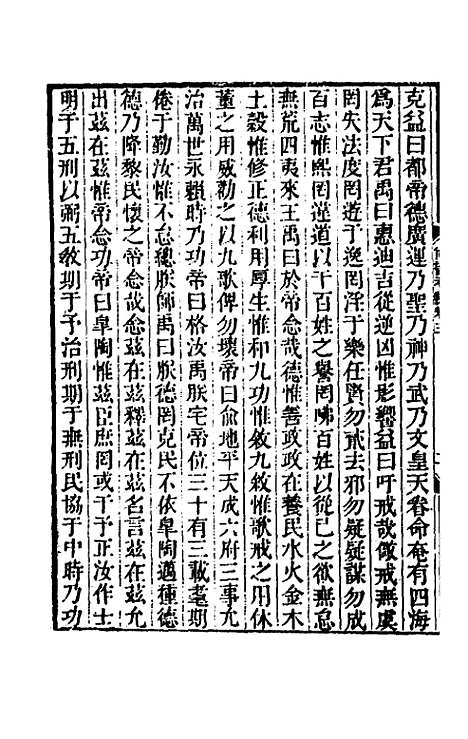 克益曰都帝德廣運乃聖乃神乃武乃文皇天眷命奄有四海
爲天下君禹曰惠迪吉從逆凶惟影響益曰吁戒哉儆戒無虞
罔失法度罔遊于逸罔淫于樂任賢勿貳去邪勿疑疑謀勿成
百志惟熙罔違道以干百姓之譽罔咈百姓以從己之欲無怠
無荒四夷來王禹曰於帝念哉德惟善政政在養民水火金木
土穀惟修正德利用厚生惟和九功惟敘九敘惟歌戒之用休
董之用威勸之以九歌俾勿壞帝曰俞地平天成六府三事允
治萬世永賴時乃功帝曰格汝禹朕宅帝位三十有三載耄期
倦于勤汝惟不怠總朕師禹曰朕德罔克民不依皐陶邁種德
德乃降黎民懷之帝念哉念茲在茲釋茲在茲名言茲在茲允
出茲在茲惟帝念功帝曰皐陶惟茲臣庶罔或干予正汝作士
明于五刑以弼五敎期于予治刑期于無刑民協于中時乃功